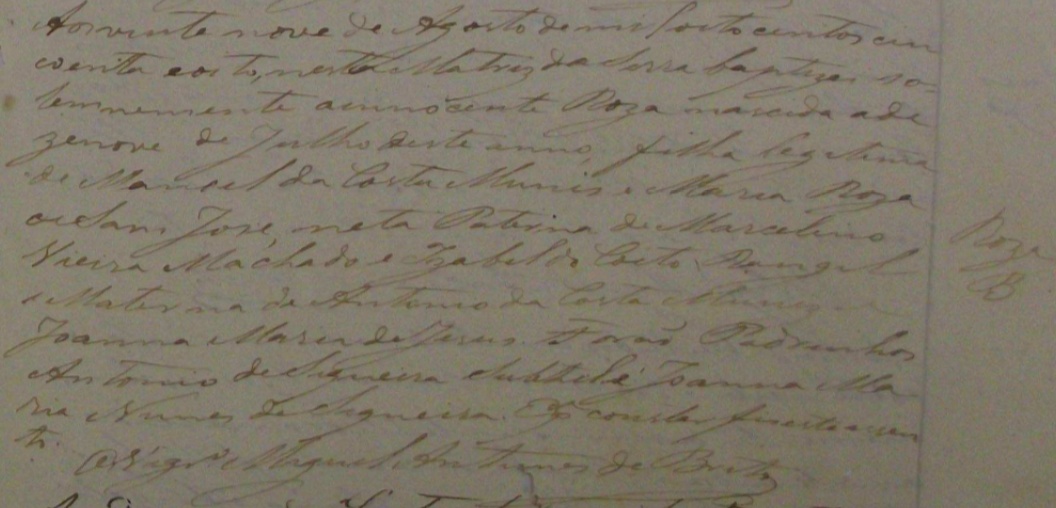 Aos vinte nove de Agosto de mil oito centos cin
coenta e oito, nesta Matriz da Serra baptizei so=
lemnemente a innocente Roza nascida a de
zenove de Julho deste anno, filha legitima
de Manoel da Costa Munis e Maria Roza
de Sam José, neta Paterna de Marcelino
Vieira Machado e Izabel da Costa Rangel
e Materna de Antonio da Costa Munis e
Joanna Maria de Jesus. Forão Padrinhos
Antonio de Siqueira e Joanna Ma
ria Nunes de Siqueira. E p<sup>a</sup> constar fiz este assen
to.
O Vigr.º Miguel Antunes de Brito
Roza
B